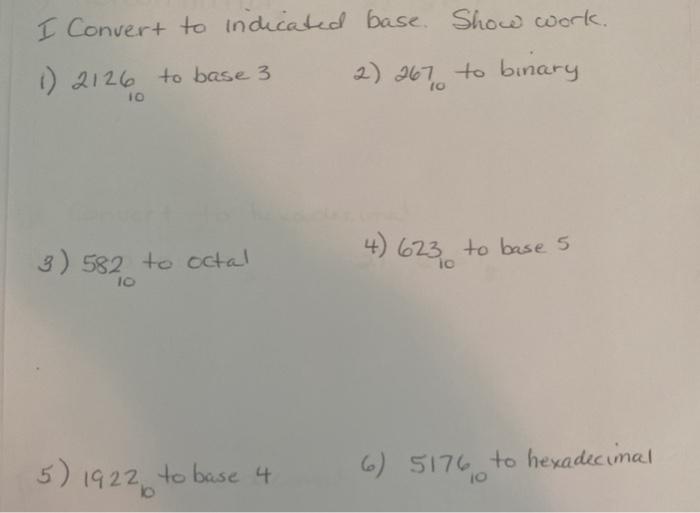 I Convert to indicated base. Show work.
1) 2126₁₀ to base 3
2) 267₁₀ to binary
3) 582₁₀ to octal
4) 623₁₀ to base 5
5) 1922₁₀ to base 4
6) 5176₁₀ to hexadecimal